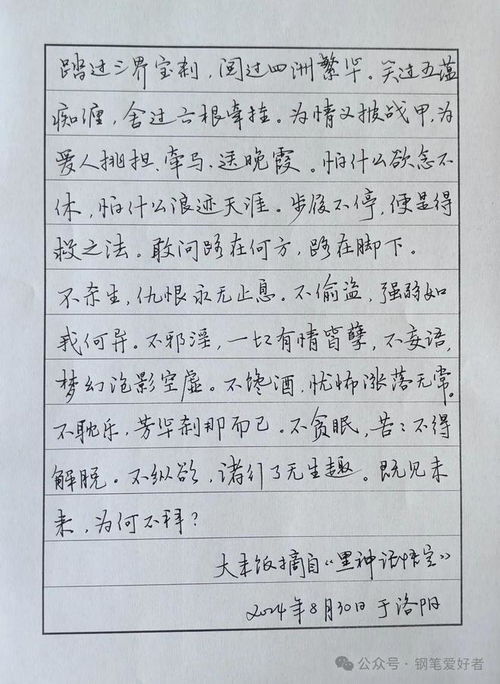 踏过三界宝刹，阅过四洲繁华。笑过五蕴
痴缠，舍过六根牵挂。为情义披战甲，为
爱人挑担、牵马、送晚霞。怕什么欲念不
休，怕什么浪迹天涯。步履不停，便是得
救之法。敢问路在何方，路在脚下。
不杀生，仇恨永无止息。不偷盗，强弱如
我何异。不邪淫，一切有情皆孽，不妄语，
梦幻泡影空虚。不馋酒，忧怖涨落无常。
不耽乐，芳华刹那而已。不贪眠，苦苦不得
解脱。不纵欲，诸行了无生趣。既见未
来，为何不拜？
大米饭摘自“黑神话悟空”
2024年8月30日于洛阳
公众号·钢笔爱好者